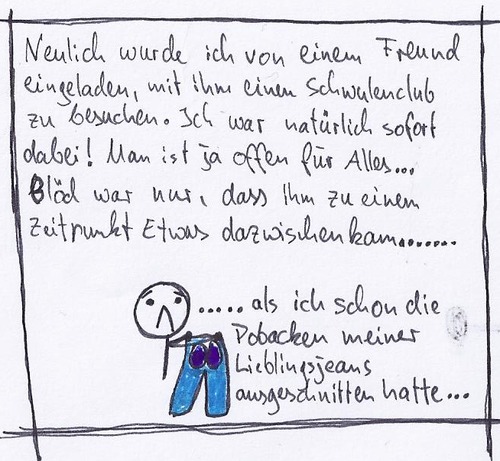 Neulich wurde ich von einem Freund
eingeladen, mit ihm einen Schwulenclub
zu besuchen. Ich war natürlich sofort
dabei! Man ist ja offen für Alles...
Blöd war nur, dass ihm zu einem
Zeitpunkt Etwas dazwischenkam.......
..... als ich schon die
Pobacken meiner
Lieblingsjeans
ausgeschnitten hatte...